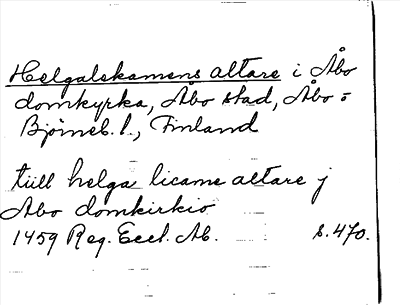 Helgalekamens altare i Åbo
domkyrka, Åbo stad, Åbo=
Björneb. l., Finland
tüll helga licame altare j
Abo domkirkio
1459 Reg. Eccl. Ab. s. 470.